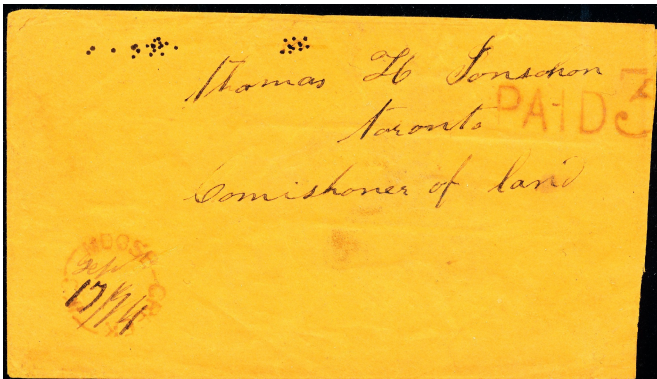 Thomas H Jonschon
PAID 3
Toronto
Comishoner of land
MOOSE-CR
Sep
17/74